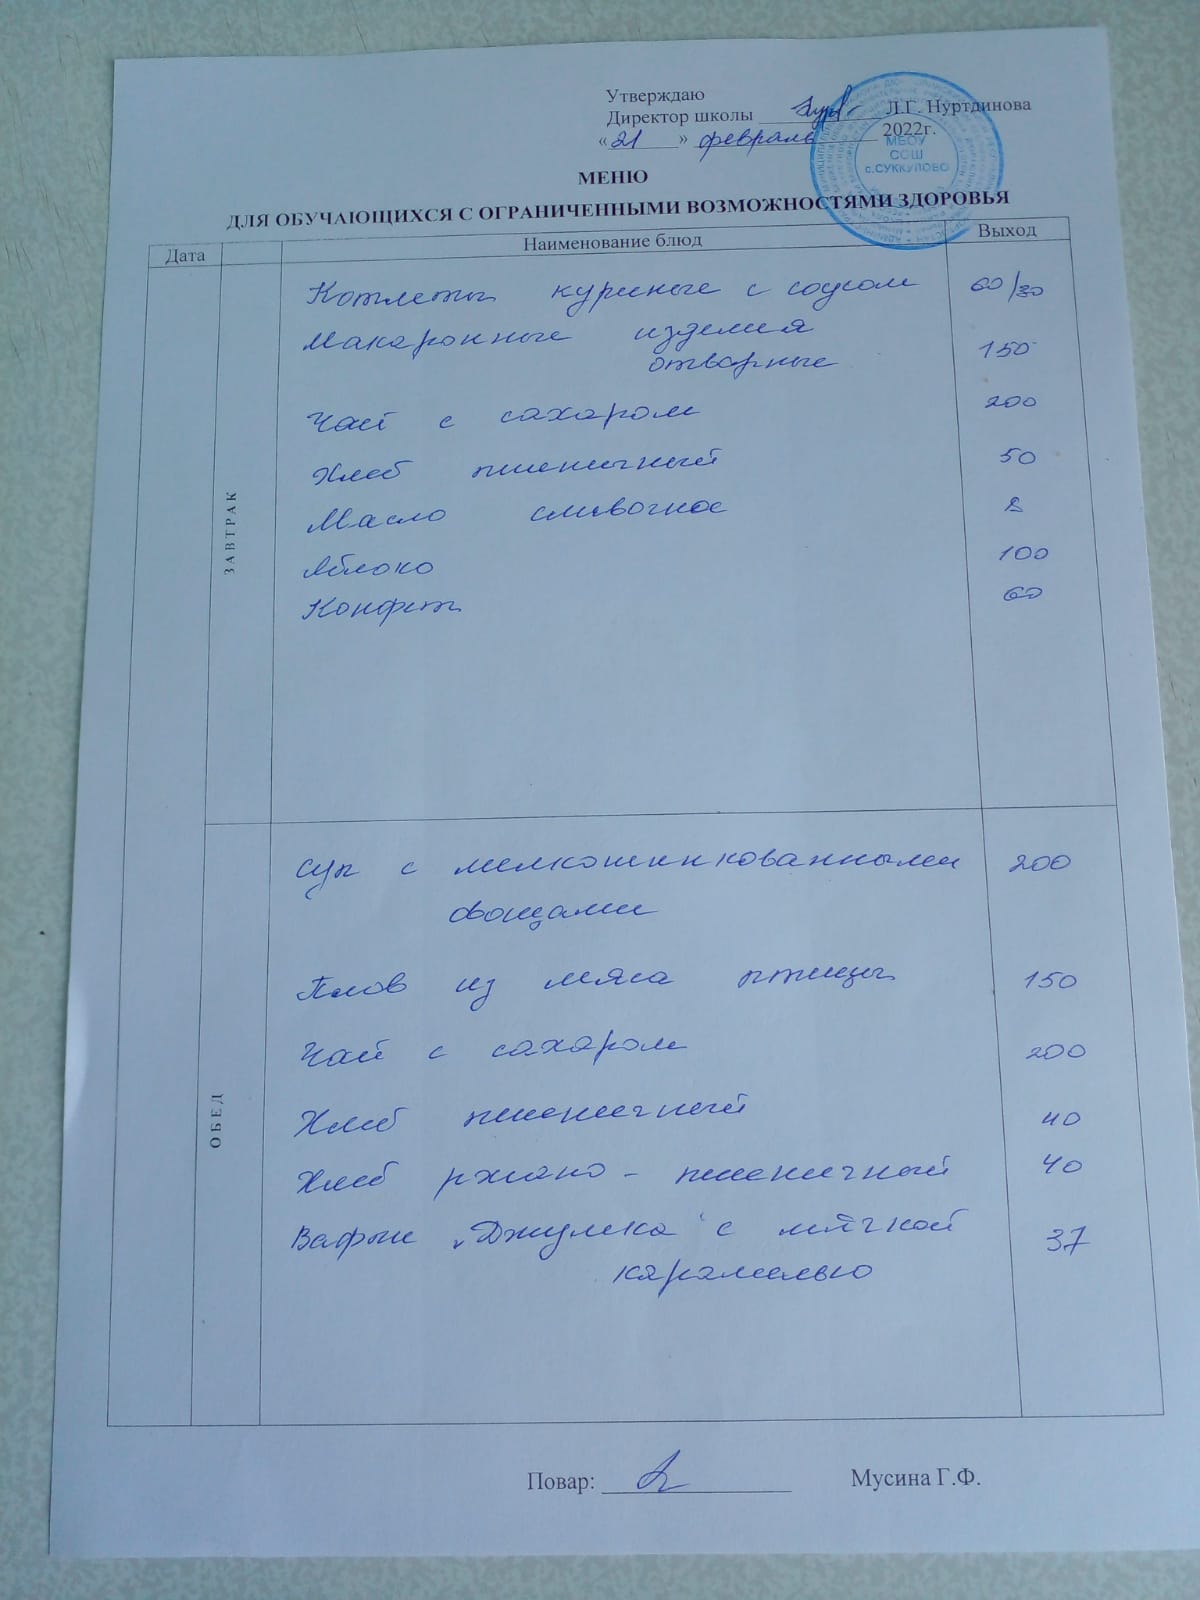 Утверждаю
Директор школы Л.Г. Нуртдинова
«21» февраль 2022г.
МБОУ
СОШ
с.СУККУЛОВО
МЕНЮ
ДЛЯ ОБУЧАЮЩИХСЯ С ОГРАНИЧЕННЫМИ ВОЗМОЖНОСТЯМИ ЗДОРОВЬЯ
Дата Наименование блюд Выход
ЗАВТРАК
Котлеты куриные с соусом 60/30
Макаронные изделия
отварные 150
Чай с сахаром 200
Хлеб пшеничный 50
Масло сливочное 8
Яблоко 100
Конфеты 60
ОБЕД
Суп с мелкошинкованными 200
овощами
Плов из мяса птицы 150
Чай с сахаром 200
Хлеб пшеничный 40
Хлеб ржано-пшеничный 40
Вафли "Джулька" с мягкой 37
карамелью
Повар: Мусина Г.Ф.